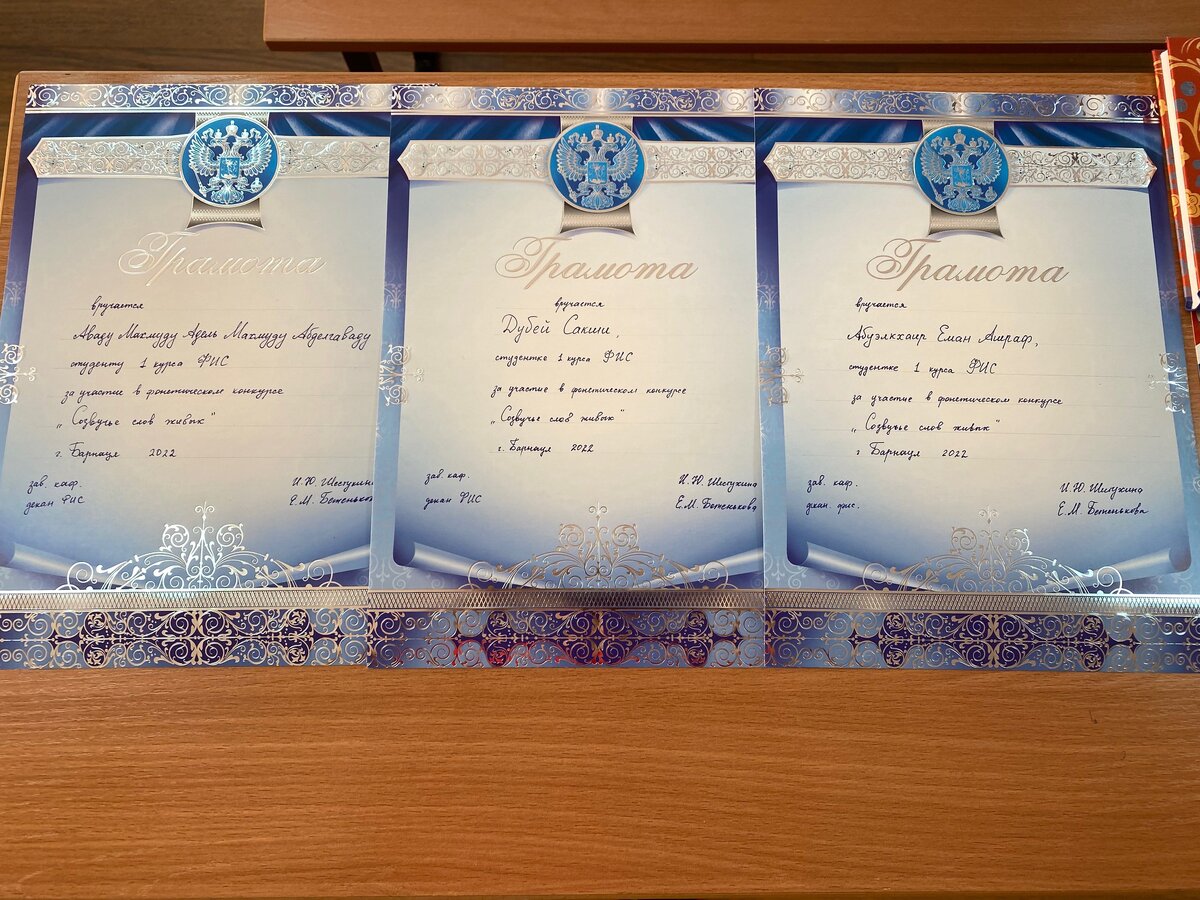 Грамота
вручается
Аваду Махмуду Адель Махмуду Абделгаваду
студенту 1 курса ФИС
за участие в фонетическом конкурсе
„Созвучье слов живых"
г. Барнаул 2022
зав. каф. И.Ю. Шестухин
декан ФИС Е.М. Бетеньков
Грамота
вручается
Дубей Сакши,
студентке 1 курса ФИС
за участие в фонетическом конкурсе
„Созвучье слов живых"
г. Барнаул 2022
зав. каф. И.Ю. Шестухина
декан ФИС Е.М. Бетенькова
Грамота
вручается
Абуэлкхаир Еман Ашраф,
студентке 1 курса ФИС
за участие в фонетическом конкурсе
„Созвучье слов живых"
г. Барнаул 2022
зав. каф. И.Ю. Шестухина
декан фис. Е.М. Бетенькова